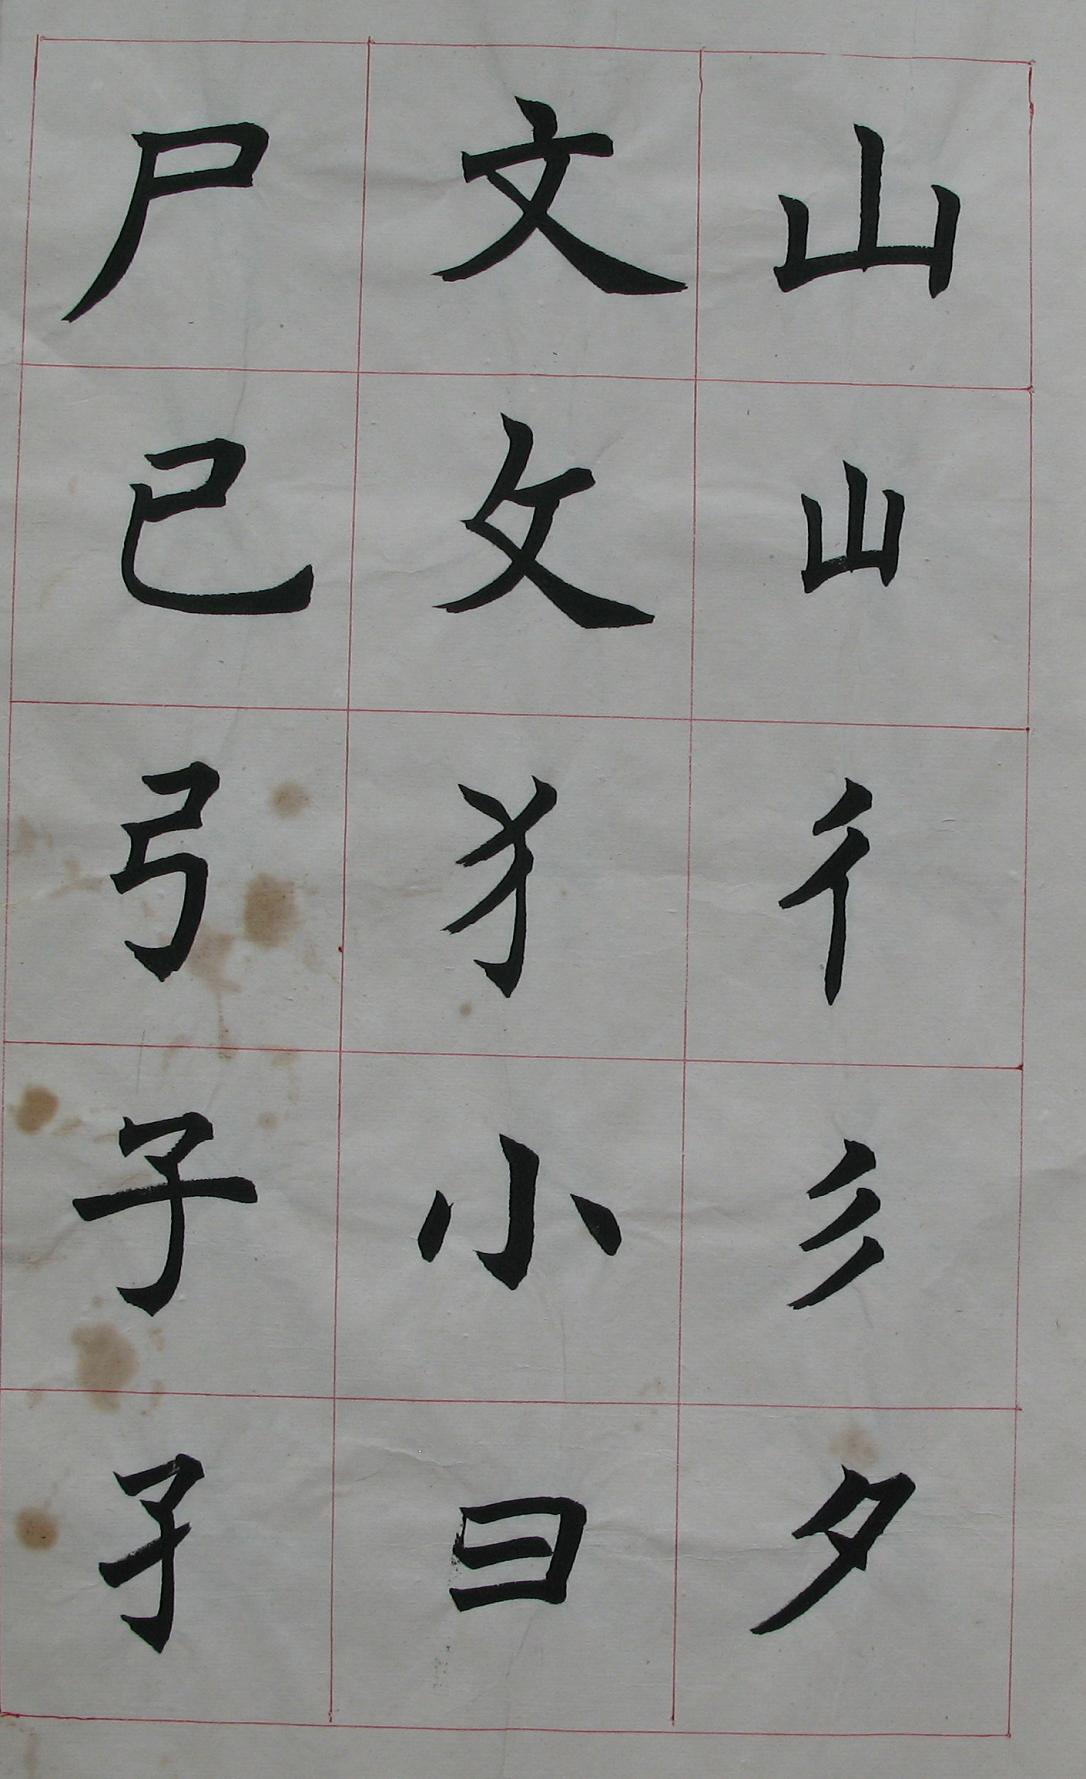 山山彳彡夕
文攵犭小彐
尸己弓子孑